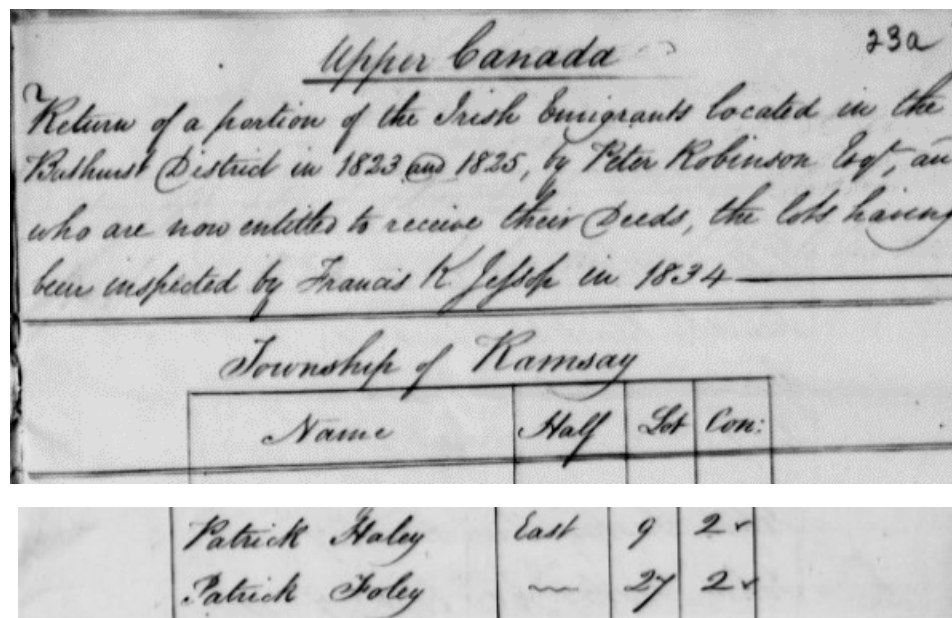 Upper Canada
23a
Return of a portion of the Irish Emigrants located in the
Bathurst District in 1823 and 1825, by Peter Robinson Esqr, an
who are now entitled to receive their Deeds, the lots having
been inspected by Francis K. Jessop in 1834
Township of Ramsay
Name Half Lot Con:
Patrick Haley East 9 2
Patrick Foley 〃 27 2